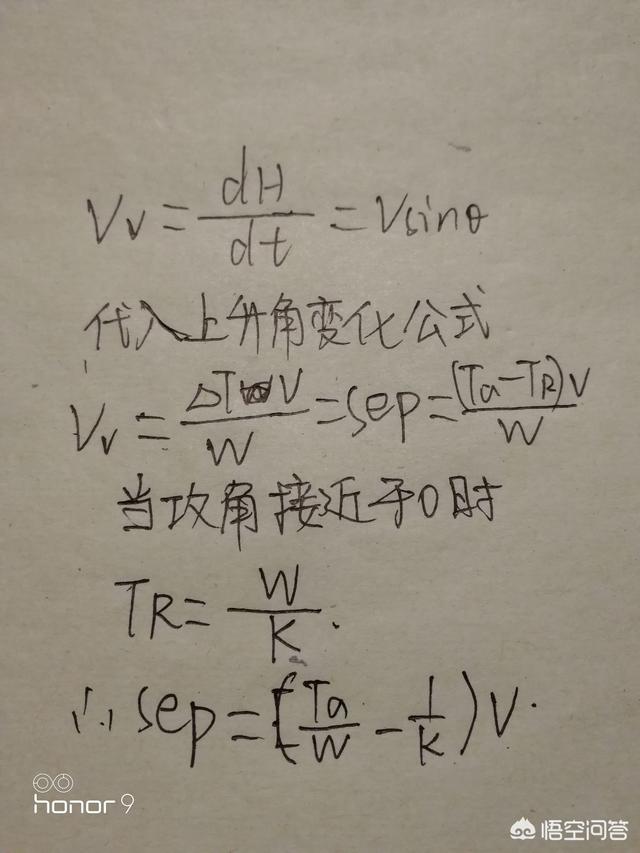 Vv = dH/dt = Vsinθ
代入上升角变化公式
Vv = ΔT V/W = sep = (Ta-TR)V/W
当攻角接近于0时
TR = W/K.
∴ sep = (Ta/W - 1/K)V.
honor 9
悟空问答